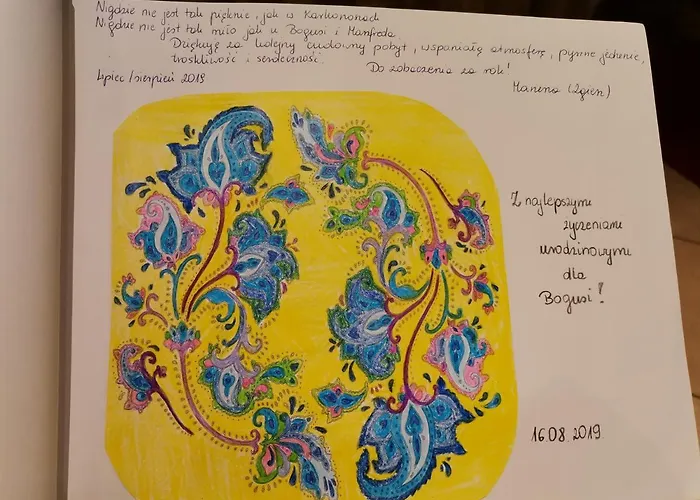 Nigdzie nie jest tak pięknie, jak w Karkonoszach
Nigdzie nie jest tak miło jak u Bogusi i Manfreda.
Dziękuję za kolejny cudowny pobyt, wspaniałą atmosferę, pyszne jedzenie,
troskliwość i serdeczność. Do zobaczenia za rok!
Lipiec/sierpień 2019
Marena (Zgierz)
Z najlepszymi
życzeniami
urodzinowymi
dla
Bogusi!
16.08.2019.